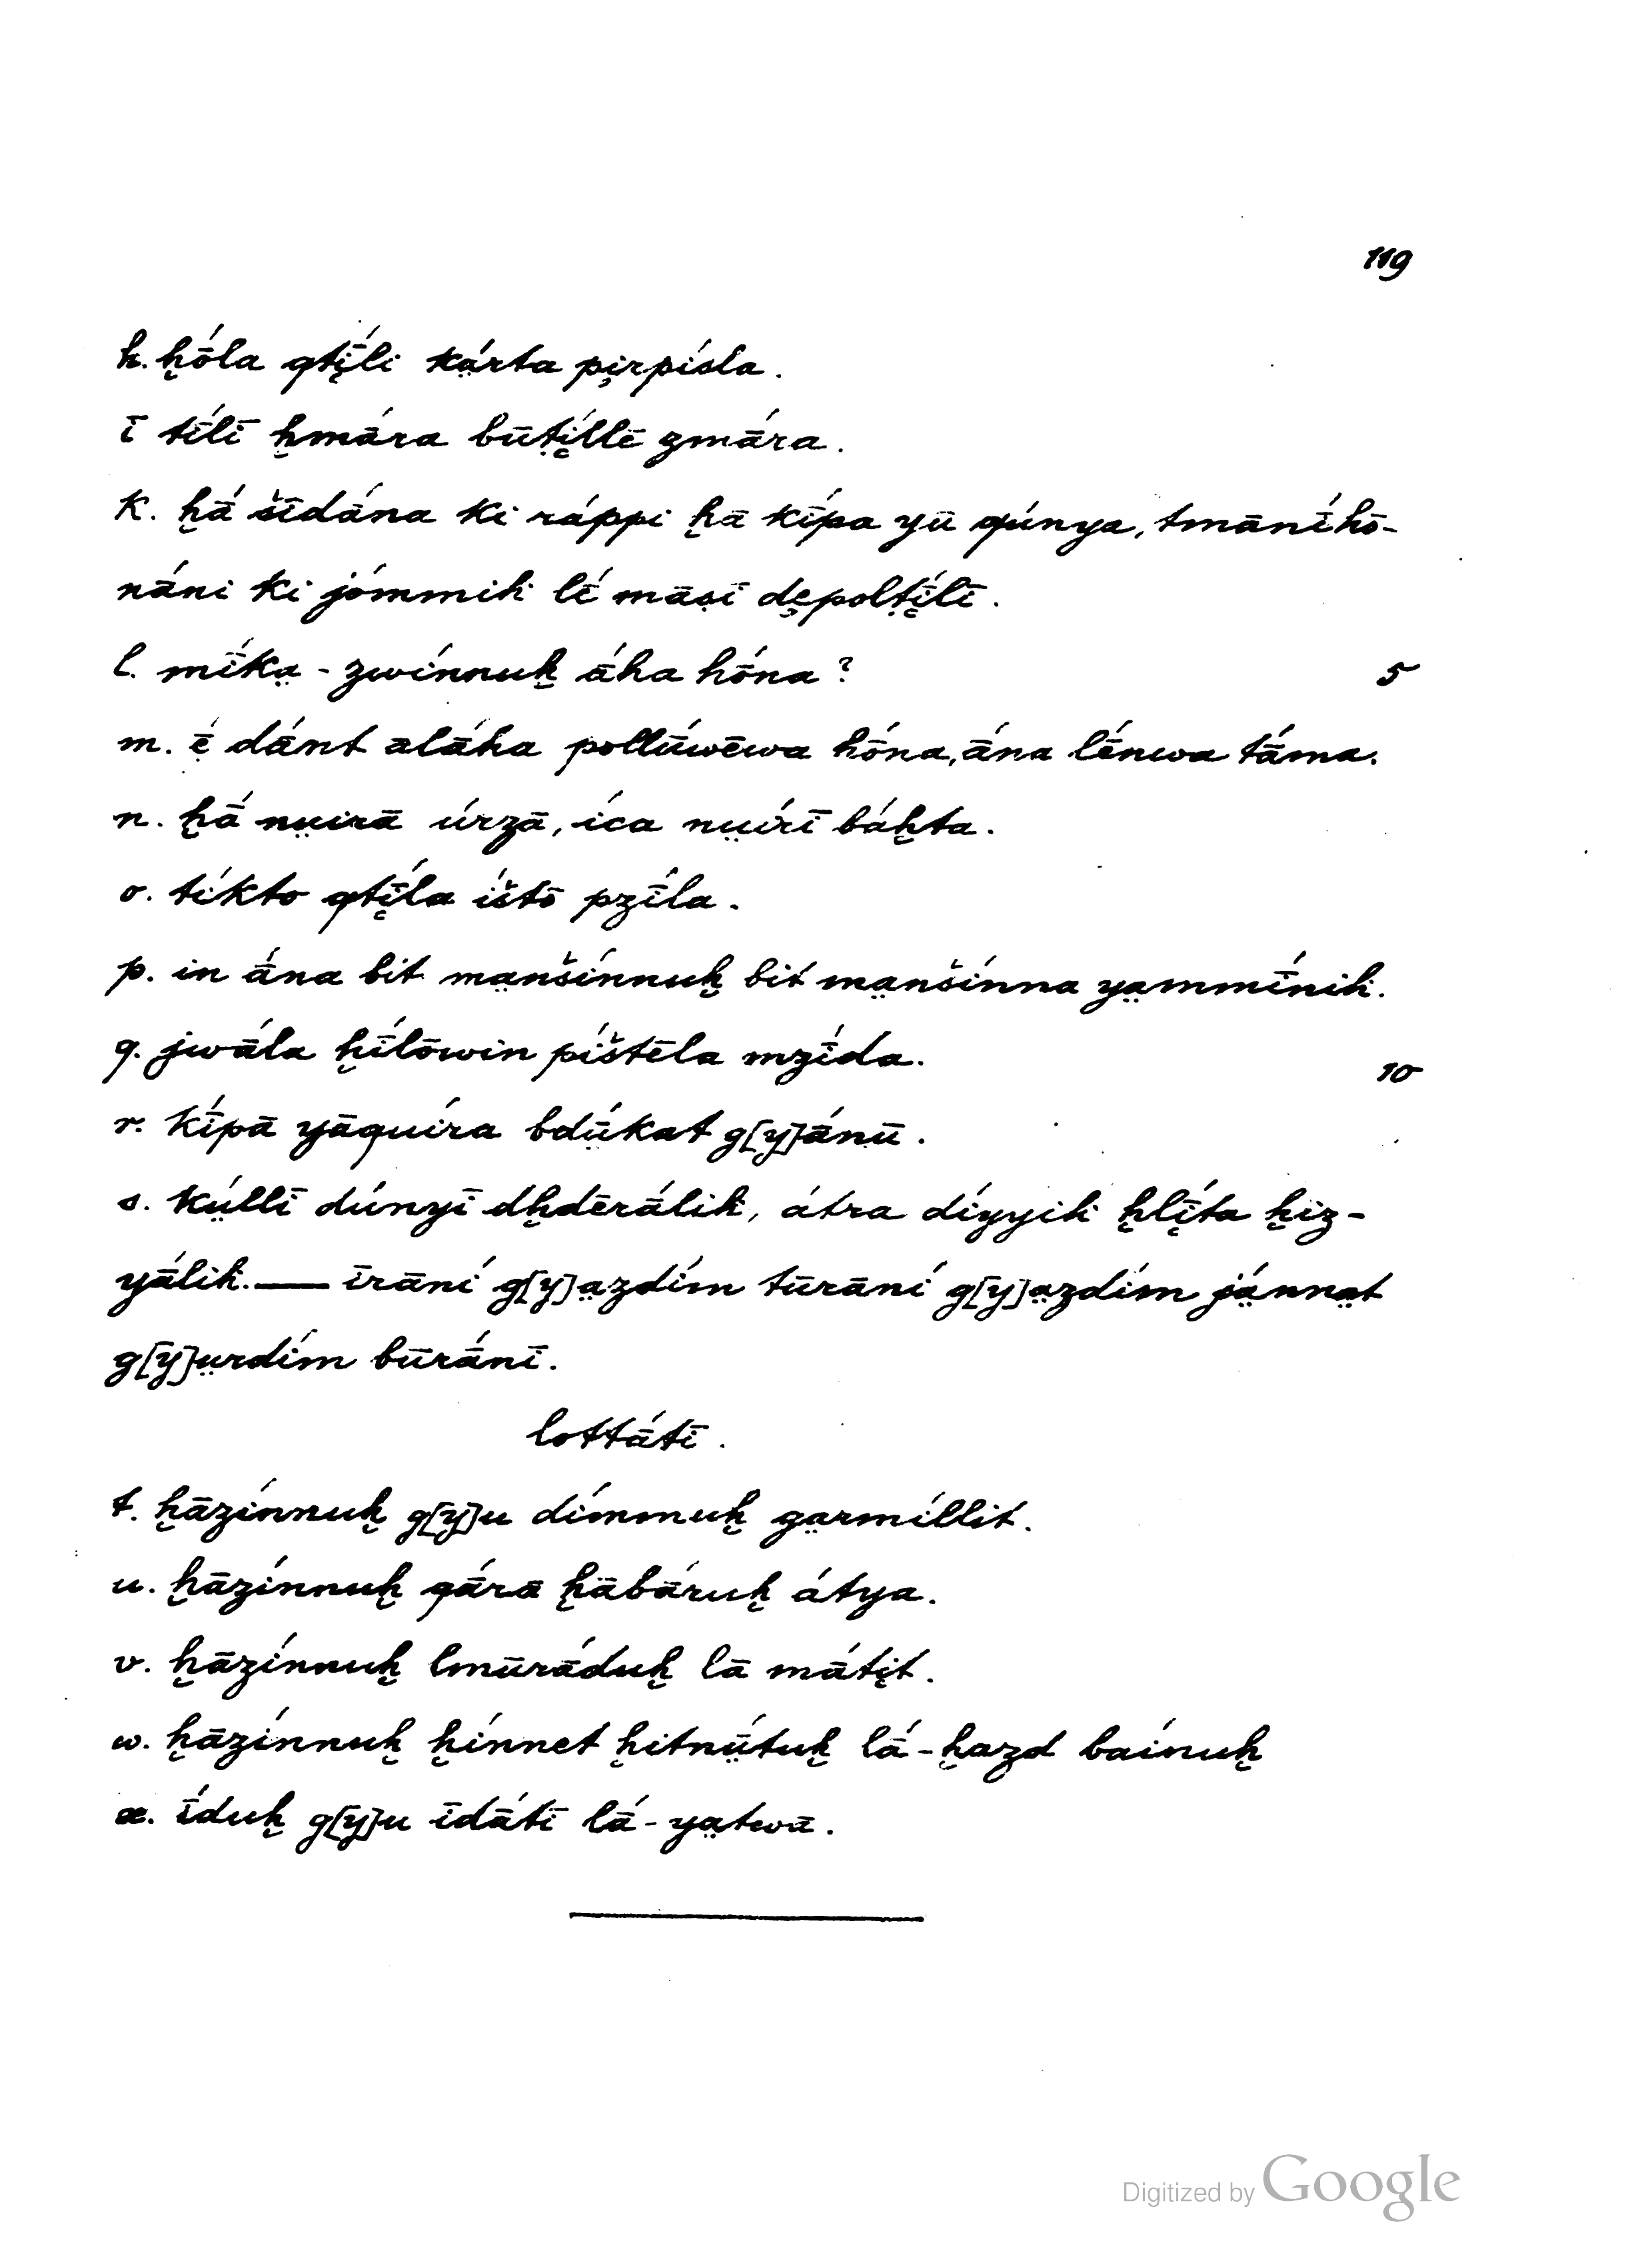 119
h. ḫṓla qtị̄́li kạ́rta pịrpísla.
ī tī́lī ḫmā́ra būṭị́llē zmā́ra.
k. ḫā́ šīdā́na ki ráppi ḫā kī́pa yū qúnya, tmānī́ hō-
nā́ni ki jómmih lḗ māṣī dẹpolṭị̄́lī.
l. mī́kạ - zwínnuḫ ā́ha hṓna? 5
m. ẹ̄ dā́nt alā́ha pollū́wēwa hṓna, ā́na lḗnwa tā́ma.
n. ḫā́ nụirā úrzā, íca nụírī báḫta.
o. tíkto qtị̄́la íštō pzī́la.
p. in ā́na bit mạnšínnuḫ bit mạnšínna yạmmī́nih.
q. jwā́la ḫī́lōwin píštēla mzī́da. 10
r. kī́pā yāquíra bdụ̄́kat g[y]ā́nū.
s. kụ́llī dúnyī dḫdērā́lih, átra díyyih ḫlị̄́ta ḫiz-
yā́lih. — īrāní g[y]ạzdím tūrāní g[y]ạzdím jạ́nnạt
g[y]ụrdím būrā́nī.
lottā́tī.
t. ḫāzínnuḫ g[y]u dímmuḫ gạrmíllit.
u. ḫāzínnuḫ qā́rā ḫābā́ruḫ átya.
v. ḫāzínnuḫ lmūrā́duḫ lā mā́tịt.
w. ḫāzínnuḫ ḫínnet ḫitnụ̄́tuḫ lā́-ḫazd baínuḫ
x. ī́duḫ g[y]u īdā́tī lā́-yạtwā.
Digitized by Google